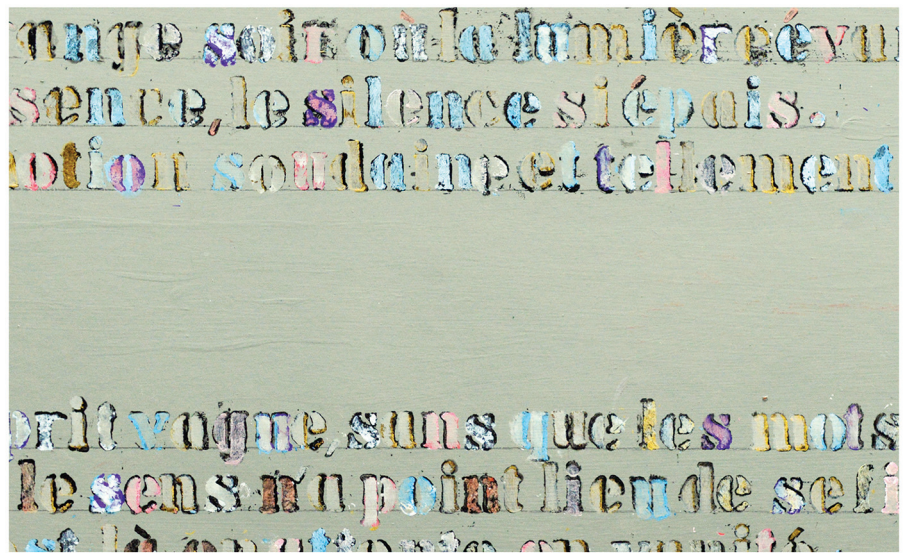 ange soir où la lumière évan
sence, le silence si épais.
otion soudaine et tellement
prit vague, sans que les mots
le sens n'a point lieu de se fi